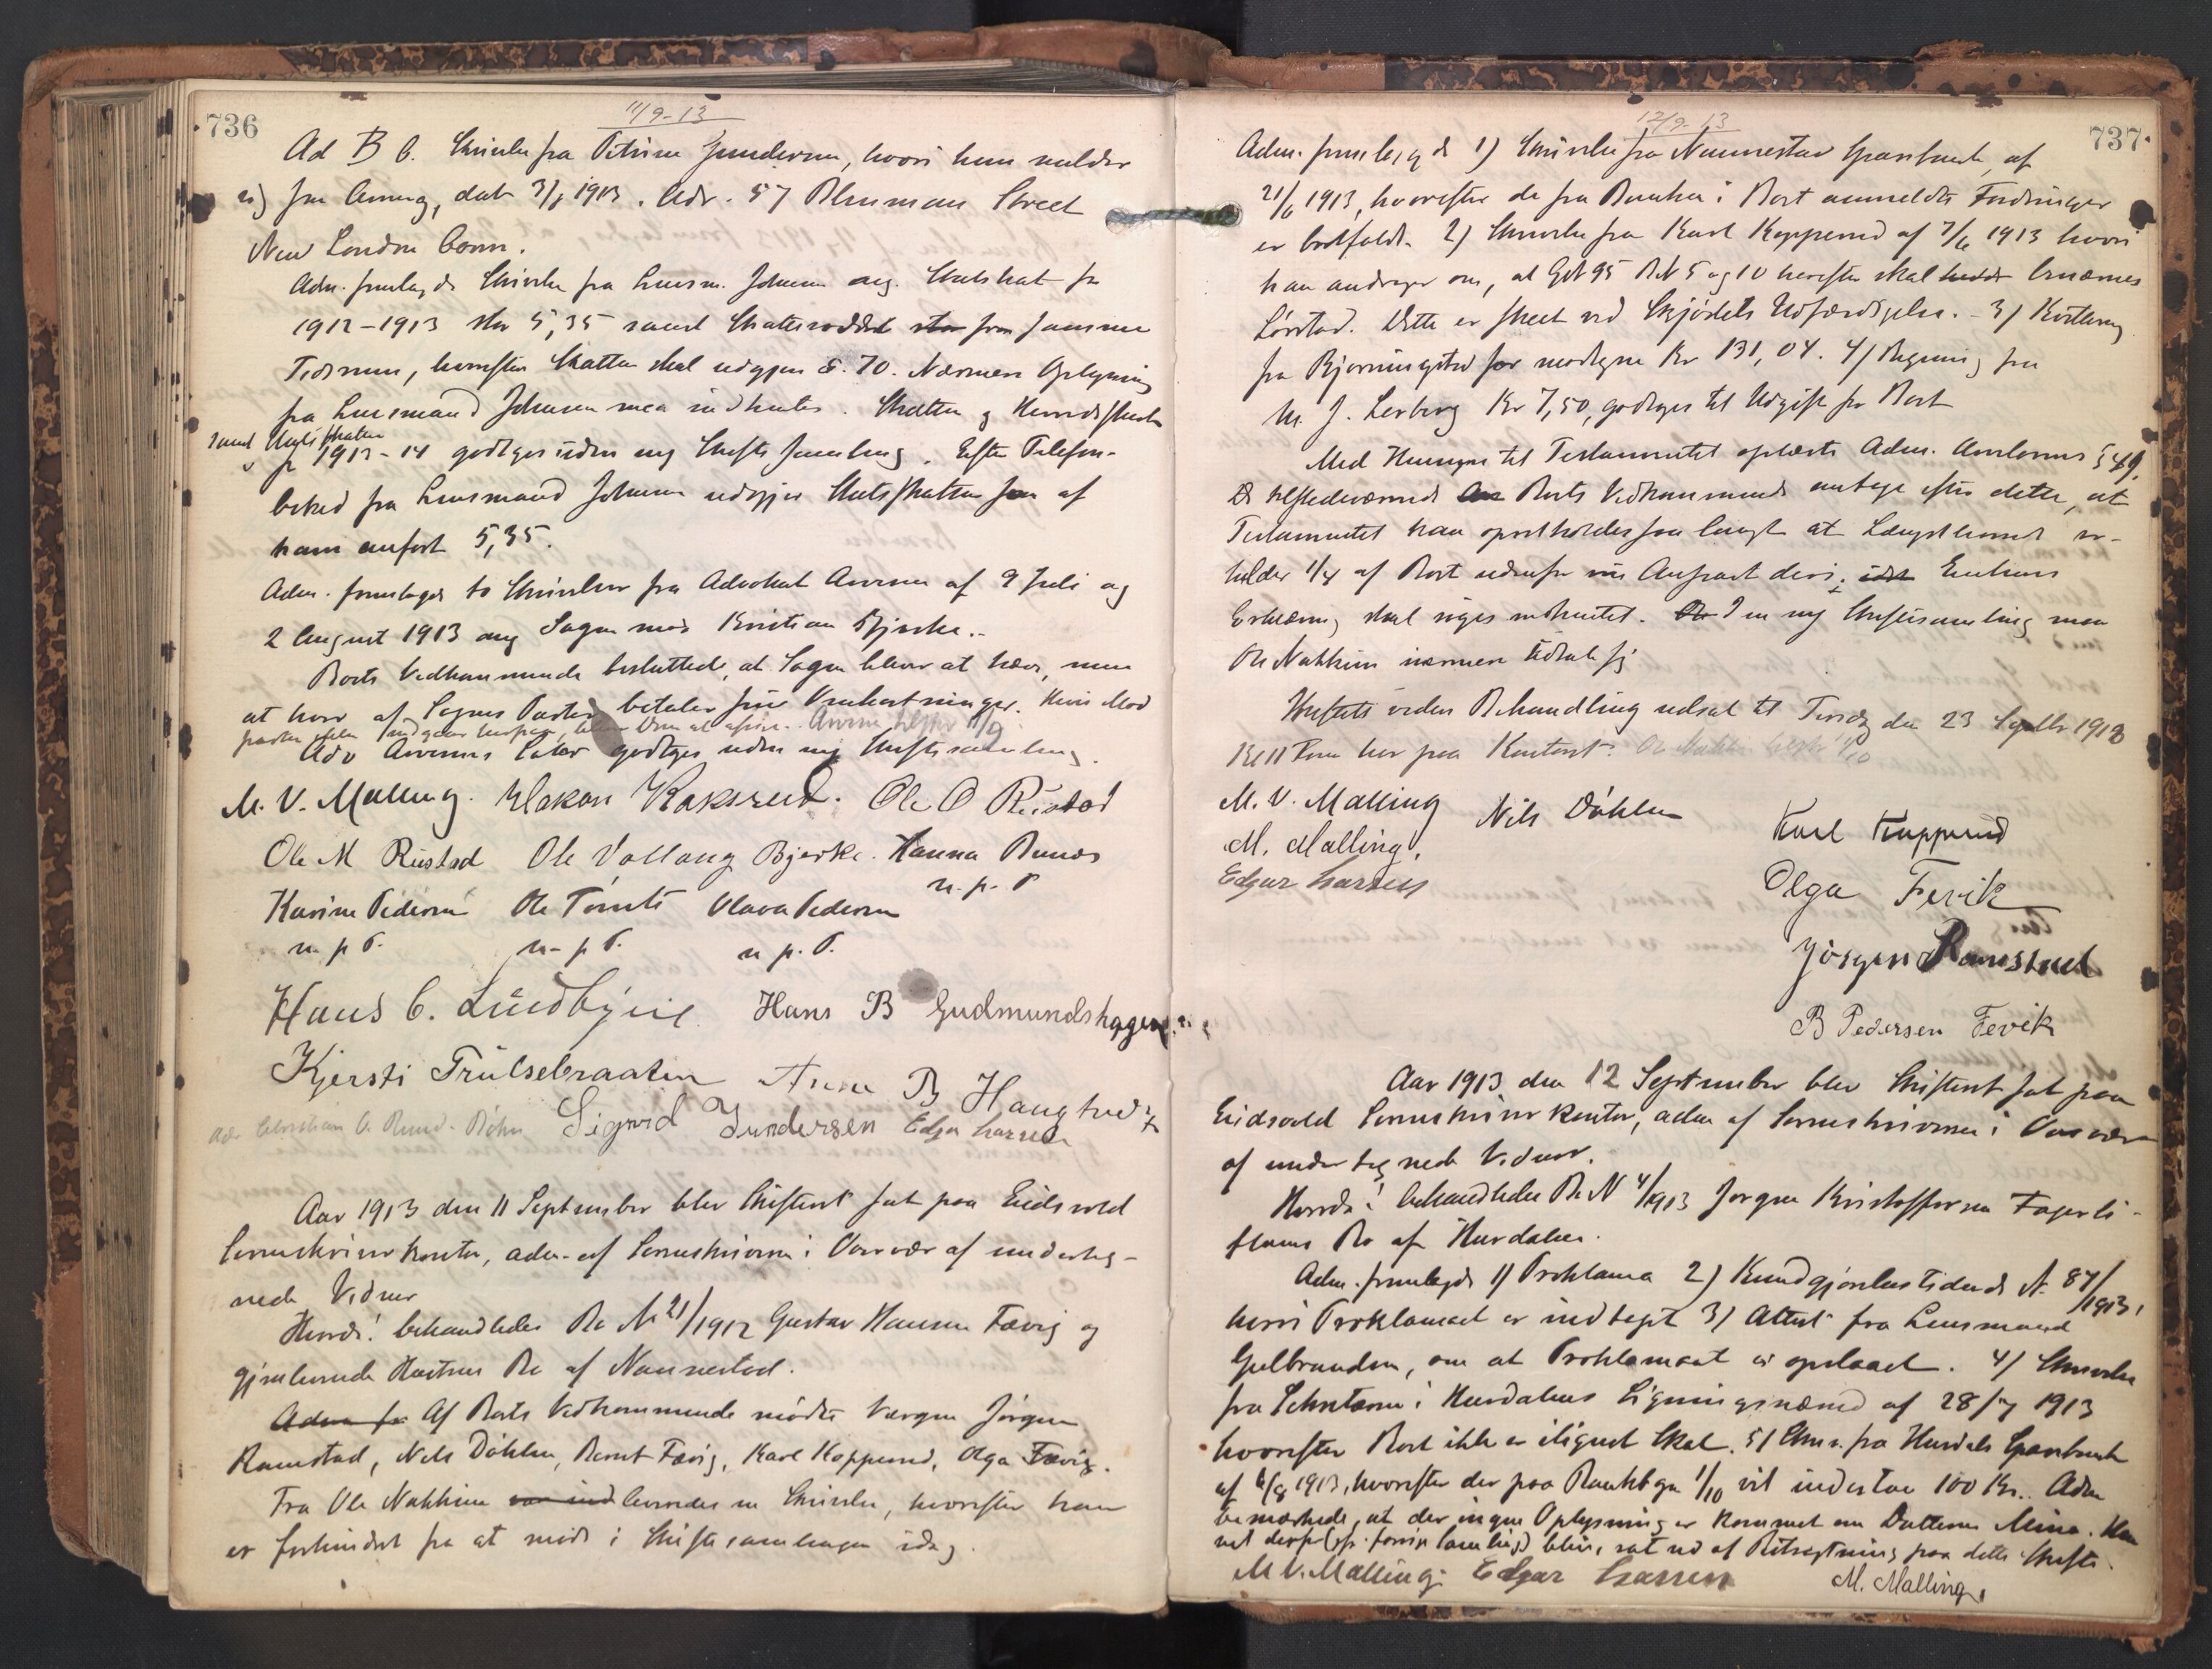 736
11/9-13
Ad B 6. Skrivelse fra Petrine Gundersen, hvori hun melder
sig som Arving, dat 3/1 1913. Adr. 57 Blenman Street
New London Conn.
Adm. fremlagde Skrivelse fra Lensm. Johnsen ang. Statsskat for
1912-1913 stor 5,35 samt Skatteseddel stor fra samme
Termin, hvorefter Skatten skal udgjøre 8.70. Nærmere Oplysning
fra Lensmand Johnsen maa indhentes. Skatten og Herredsskat
samt Statsskatten
for 1913-14 godtges uden ny Skiftesamling. Efter Telefon-
besked fra Lensmand Johnsen udgjør Statsskatten som af
ham anført 5,35.
Adm. fremlagde to Skrivelser fra Advokat Arnesen af 9 Juli og
2 August 1913 ang Sagen mod Kristian Bjerke.-
Boets Vedkommende besluttede, at Sagen bliver at hæve, men
at hver af Sagens Parter betaler sine Omkostninger. Hvis Mod
parten ikke indgaar herpaa, bliver Dom at afsige. Arnesen tilskr 11/9
Adv Arnesens Salær godtges uden ny Skiftesamling.
M. V. Malling. Hakon Koksrud. Ole O Rustad
Ole M Rustad Ole Vollaug Bjerke. Hanna Runås
m. p. P
Karine Pedersen Ole Tømte Olava Pedersen
m. p P. m. p P. m p. P.
Hans C. Lundbyeie Hans B Gudmundshagen
Kjersti Trulsebraaten Anne B Haugtvedt
Adv Christian C. Ruud. Bøhn Sigvard Gundersen Edgar Larsen
Aar 1913 den 11 September blev Skifteret sat paa Eidsvold
Sorenskriverkontor, adm. af Sorenskriveren i Overvær af underteg-
nede Vidner
Hvorda! behandledes Bo No 21/1912 Gustav Hansen Fævig og
gjenlevende Hustrus Bo af Nannestad.
Adm fr Af Boets Vedkommende mødte Værgen Jørgen
Ramstad, Nils Døhlen, Bernt Fævig, Karl Kopperud, Olga Fævig.
Fra Ole Nakkim var ind leveredes en Skrivelse, hvorefter han
er forhindret fra at møde i Skiftesamlingen idag.
737
12/9-13
Adm. fremlagde 1) Skrivelse fra Nannestad Sparebank af
21/6 1913, hvorefter de fra Banken i Boet anmeldte Fordringer
er bortfaldt. 2) Skrivelse fra Karl Kopperud af 7/6 1913 hvori
han andrager om, at GNo 95 BNo 5 og 10 herefter skal hedde benævnes
Lørstad. Dette er skeet ved Skjødets Udfærdigelse. - 3) Kvittering
fra Bjerningstad for modtagne Kr 131,04. 4) Regning fra
M. J. Lerberg Kr 7,50, godtges til Udgift for Boet
Med Hensyn til Testamentet oplæste Adm. Arvelovens § 49.
De tilstedeværende Arv Boets Vedkommende antage efter dette, at
Testamentet kan opretholdes saa langt at Længstlevende er-
holder 1/4 af Boet udenfor sin Anpart deri. idet Enkens
Erklæring skal siges indhentet. De I en ny Skiftesamling maa
Ole Nakkim nærmere udtale sig
Skiftets videre Behandling udsat til Tirsdag den 23 Septbr 1913
Kl 11 Form her paa Kontoret. Ole Nakkim beskr 1/10
M. V. Malling Nils Døhlen Karl Kopperud
M. Malling.
Edgar Larsen Olga Fevik
Jørgen Ramstad
B Pedersen Fevik
Aar 1913 den 12 September blev Skifteret sat paa
Eidsvold Sorenskriverkontor, adm af Sorenskriveren i Overvær
af undertegnede Vidner.
Hvorda! behandledes Bo No 4/1913 Jørgen Kristoffersen Fagerli-
flauns Bo af Hurdalen.
Adm. fremlagde 1) Proklama 2) Kundgjørelsestidende No 87/1913,
hvori Proklamaet er indtaget 3) Attest fra Lensmand
Gulbrandsen, om at Proklamaet er opslaaet. 4) Skrivelse
fra Sekretæren i Hurdalens Ligningsnævnd af 28/7 1913
hvorefter Boet ikke er ilignet Skat. 5) Skr. fra Hurdals Sparebank
af 6/8 1913, hvorefter der paa Bankbogen 1/10 vil indestaa 100 Kr. Adm
bemærkede, at der ingen Oplysning er kommet om Datteren Mina. Hun
vil derfor (jfr. forrige Samling) blive sat ud af Betragtning paa dette Skifte.
M V. Malling. Edgar Larsen M. Malling.